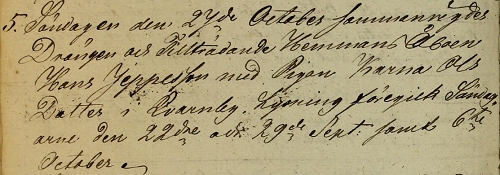 5. Söndagen den 27de October sammanvigdes
Drängen och Tillträdande Hemmans Åboen
Hans Jeppesson med Pigan Karna Ols
Dotter i Qvarnby. Lysning föregick Söndag
arne den 22dne och 29de Sept: samt 6te
October